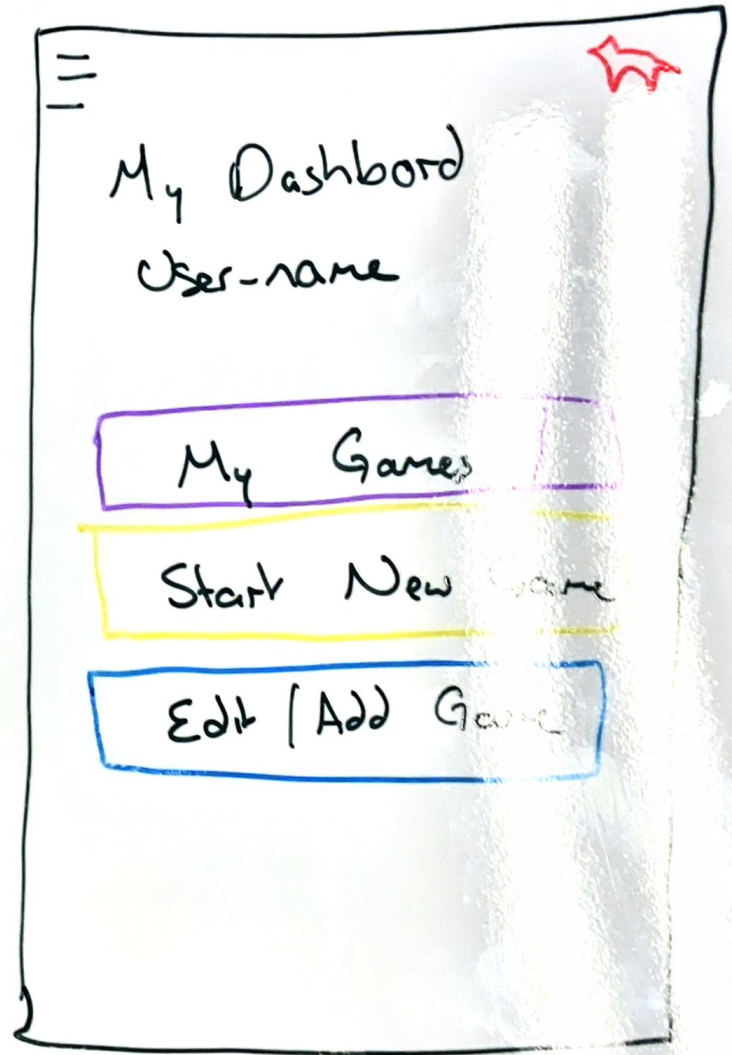 My Dashbord
User-name
My Games
Start New Game
Edit | Add Game